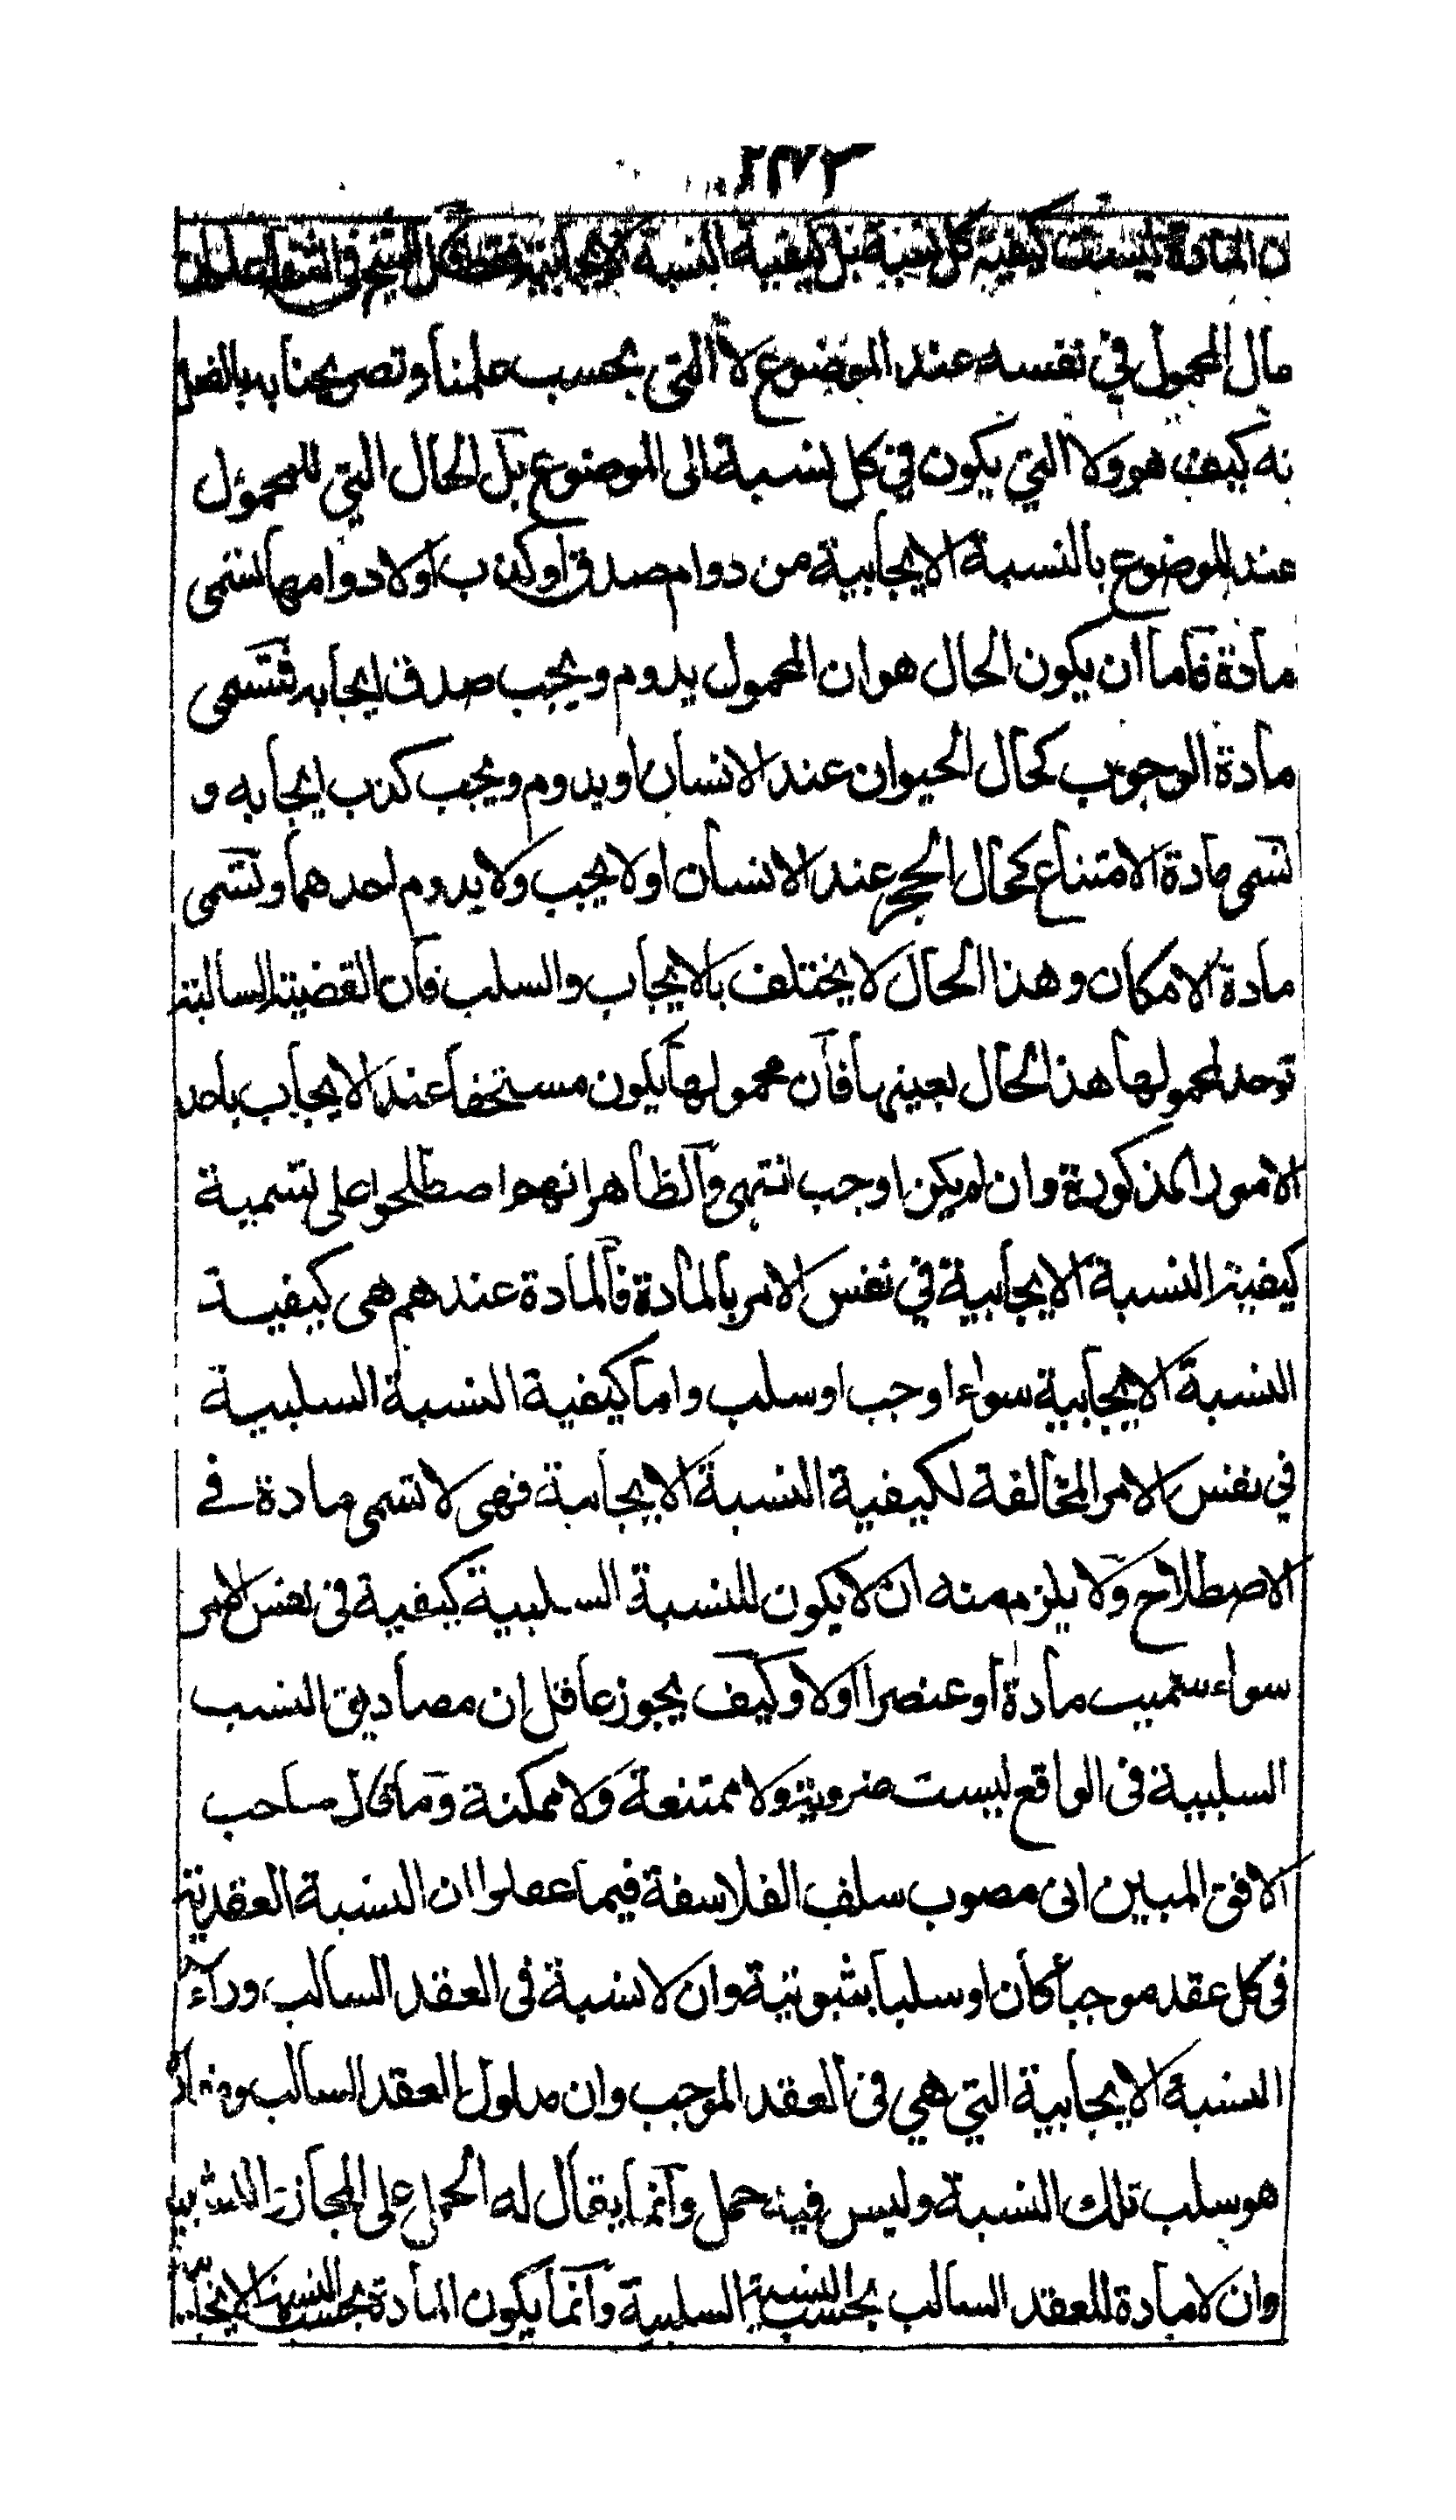 ن المادة ليست كيفية كل نسبة بل كيفية النسبة الايجابية فقط قال الشيخ في الشفا اعلم ان
حال المحمول في نفسه عند الموضوع لا التي بحسب علمنا وتصريحنا به بالفعل
نه كيف هو ولا التي يكون في كل نسبة الى الموضوع بل الحال التي للمحمول
عند الموضوع بالنسبة الايجابية من دوام صدق او كذب او لا دوامها تسمى
مادة فاما ان يكون الحال هو ان المحمول يدوم ويجب صدق ايجابه فتسمى
مادة الوجوب كحال الحيوان عند الانسان او يدوم ويجب كذب ايجابه و
تسمى مادة الامتناع كحال الحجر عند الانسان او لا يجب ولا يدوم احدهما وتسمى
مادة الامكان وهذا الحال لا يختلف بالايجاب والسلب فان القضية السالبة
توجد لمحمولها هذا الحال بعينها فان محمولها يكون مستحقا عند الايجاب باحد
الامور المذكورة وان لم يكن اوجب انتهى والظاهر انهم اصطلحوا على تسمية
كيفية النسبة الايجابية في نفس الامر بالمادة فالمادة عندهم هى كيفية
النسبة الايجابية سواء اوجب او سلب واما كيفية النسبة السلبية
في نفس الامر المخالفة لكيفية النسبة الايجابية فهى لا تسمى مادة في
الاصطلاح ولا يلزم منه ان لا يكون للنسبة السلبية كيفية في نفس الامر
سواء سميت مادة او عنصرا اولا وكيف يجوز عاقل ان مصاديق النسب
السلبية في الواقع ليست ضرورية ولا ممتنعة ولا ممكنة وما قال صاحب
الافق المبين انى مصوب سلف الفلاسفة فيما عقلوا ان النسبة العقدية
في كل عقد موجبا كان او سلبا ثبوتية وان لا نسبة في العقد السالب وراء
النسبة الايجابية التي هي في العقد الموجب وان مدلول العقد السالب ومفاده
هو سلب تلك النسبة وليس فيه حمل وانما يقال له الحمل على المجاز والتشبيه
وان لا مادة للعقد السالب بحسب النسبة السلبية وانما يكون المادة بحسب النسبة الايجابية